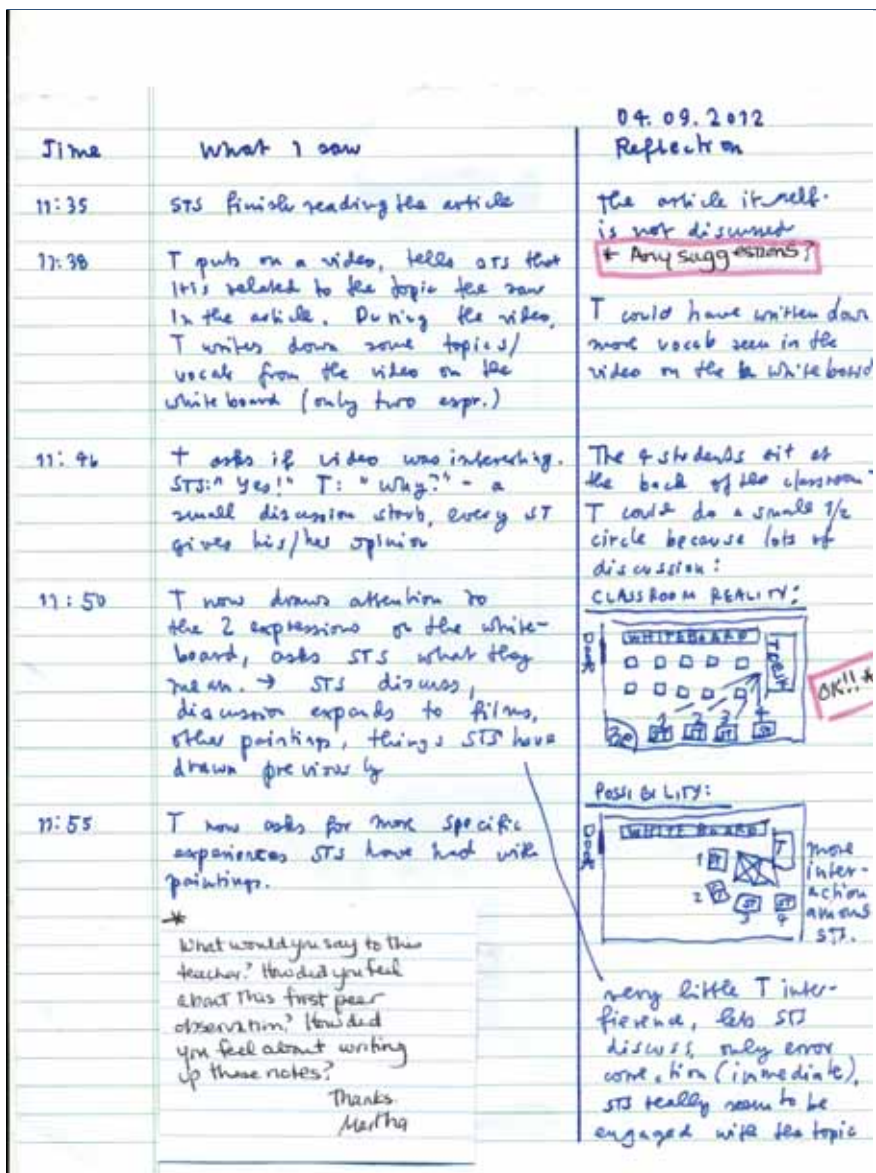 04.09.2012
Time
What I saw
Reflection
11:35
STS finish reading the article
The article itself
is not discussed
* Any suggestions?
11:38
T puts on a video, tells STS that
it is related to the topic the saw
in the article. During the video,
T writes down some topics/
vocab from the video on the
whiteboard (only two expr.)
T could have written down
more vocab seen in the
video on the whiteboard
11:46
T asks if video was interesting.
STS: "Yes!" T: "Why?" - a
small discussion starts, every ST
gives his/her opinion
The 4 students sit at
the back of the classroom
T could do a small 1/2
circle because lots of
discussion:
11:50
T now draws attention to
the 2 expressions on the white-
board, asks STS what they
mean. → STS discuss,
discussion expands to films,
other paintings, things STS have
drawn previously
CLASSROOM REALITY:
Door
WHITEBOARD
T DESK
1 2 3 4
ST ST ST ST
OK!! *
11:55
T now asks for more specific
experiences STS have had with
paintings.
POSSIBILITY:
Door
WHITE BOARD
T
1 ST
2 ST
ST ST
3 4
more
inter-
action
among
STS.
*
What would you say to this
teacher? How did you feel
about this first peer
observation? How did
you feel about writing
up these notes?
Thanks
Martha
very little T inter-
fierence, lets STS
discuss, only error
correction (immediate),
STS really seem to be
engaged with the topic